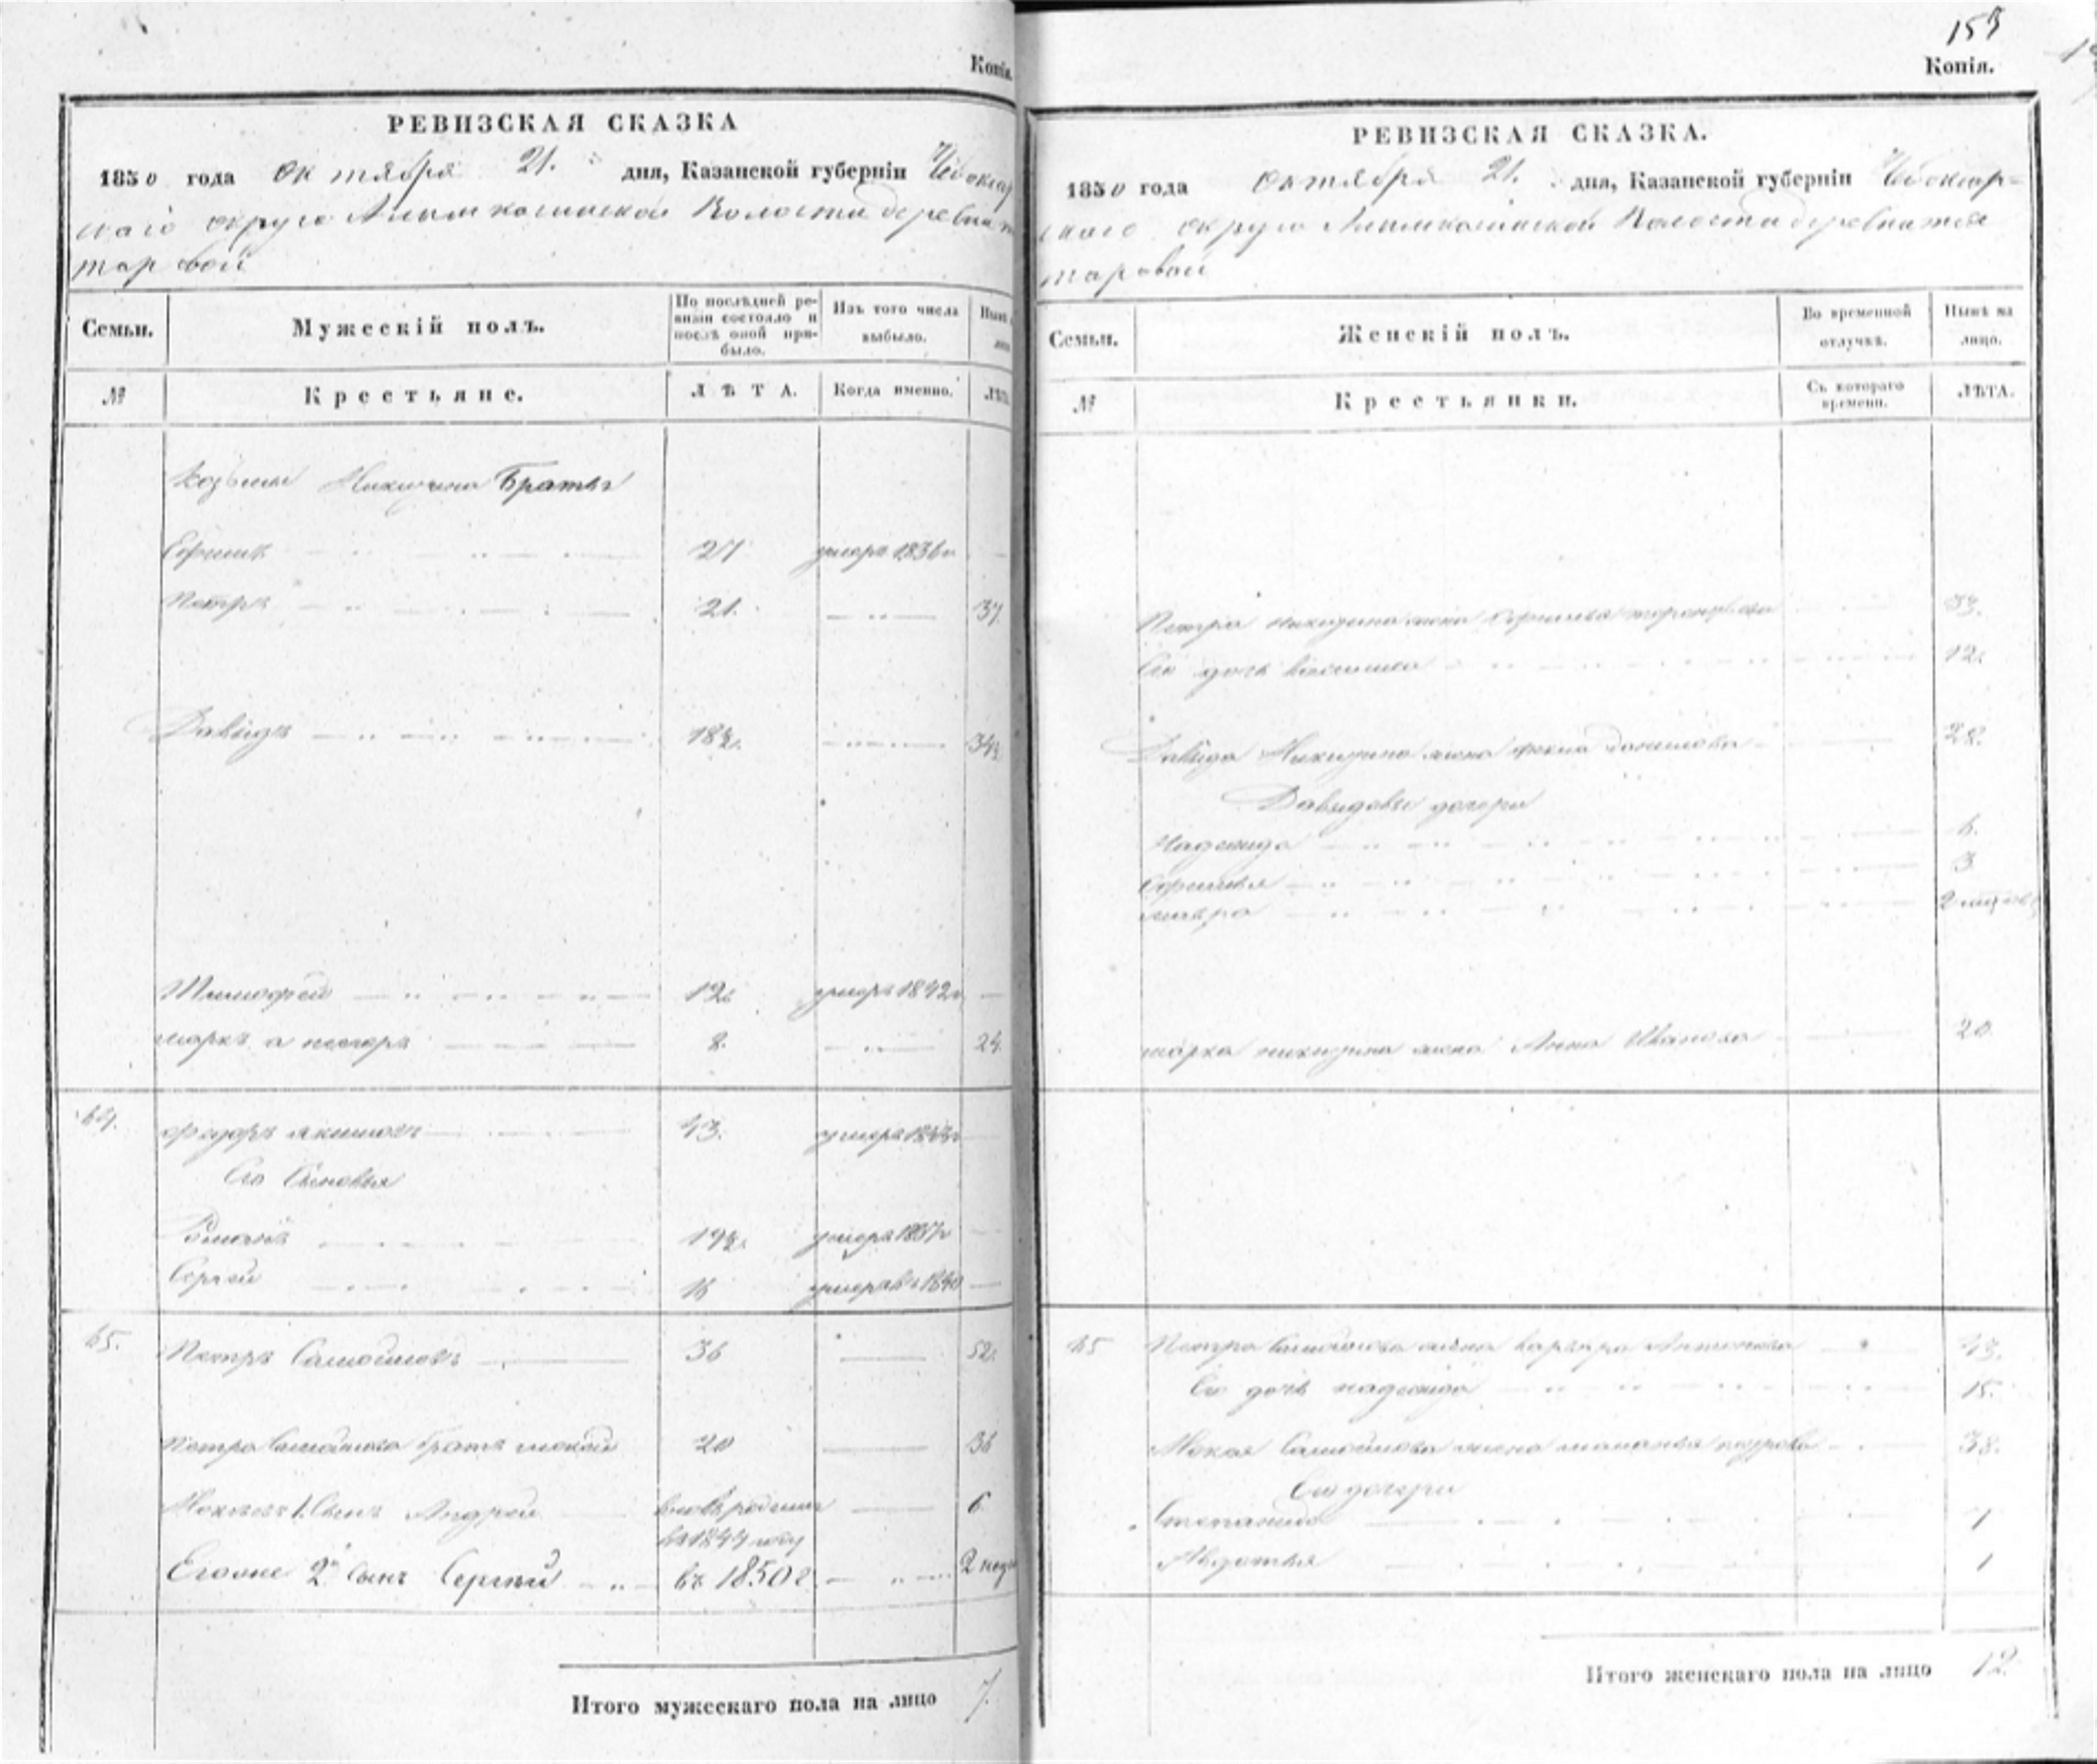 Копія.
РЕВИЗСКАЯ СКАЗКА
1850 года Октября 21. дня, Казанской губерніи Чебоксар
скаго округа Волости деревни
таровой
Семьи.
Мужескій полъ.
По послѣдней ревизіи состояло и послѣ оной прибыло.
Изъ того числа выбыло.
№
Крестьяне.
ЛѢТА.
Когда именно.
Козьмы Никитина Братья
Ефимъ 27 умеръ 1836
Петръ 21. 37.
Давыдъ 18½. 34½
Тимофей 12 умеръ 1842
Маркъ 8. 24.
64. Федоръ Якимовъ 43. умеръ
Его Сыновья
Романъ 19½. умеръ 1837
Сергей 16 умеръ 1840
65. Петръ Самойловъ 36 52.
Петра Самойлова братъ Мокей 20 36
Мокѣевъ 1. Сынъ Андрей вновь рожденъ 6
въ 1844 году
Его же 2й Сынъ Сергѣй въ 1850 г. 2 нед
Итого мужескаго пола на лицо 7.
153
Копія.
РЕВИЗСКАЯ СКАЗКА.
1850 года Октября 21. дня, Казанской губерніи Чебоксар=
скаго округа Волости деревни
таровой
Семьи.
Женскій полъ.
Во временной отлучкѣ.
Нынѣ на лицо.
№
Крестьянки.
Съ котораго времени.
ЛѢТА.
Петра Никитина жена 33.
Его дочь 12.
Давыда Никитина жена Фекла Данилова 28.
Давыдовы дочери
Надежда 6.
Ефимья 3
Мавра 2
Марка Никитина жена Анна Иванова 20
65 Петра Самойлова жена Варвара Антонова 43.
Его дочь Надежда 15.
Мокея Самойлова жена Маланья Петрова 38.
Его дочери
Степанида 7
Авдотья 1
Итого женскаго пола на лицо 12